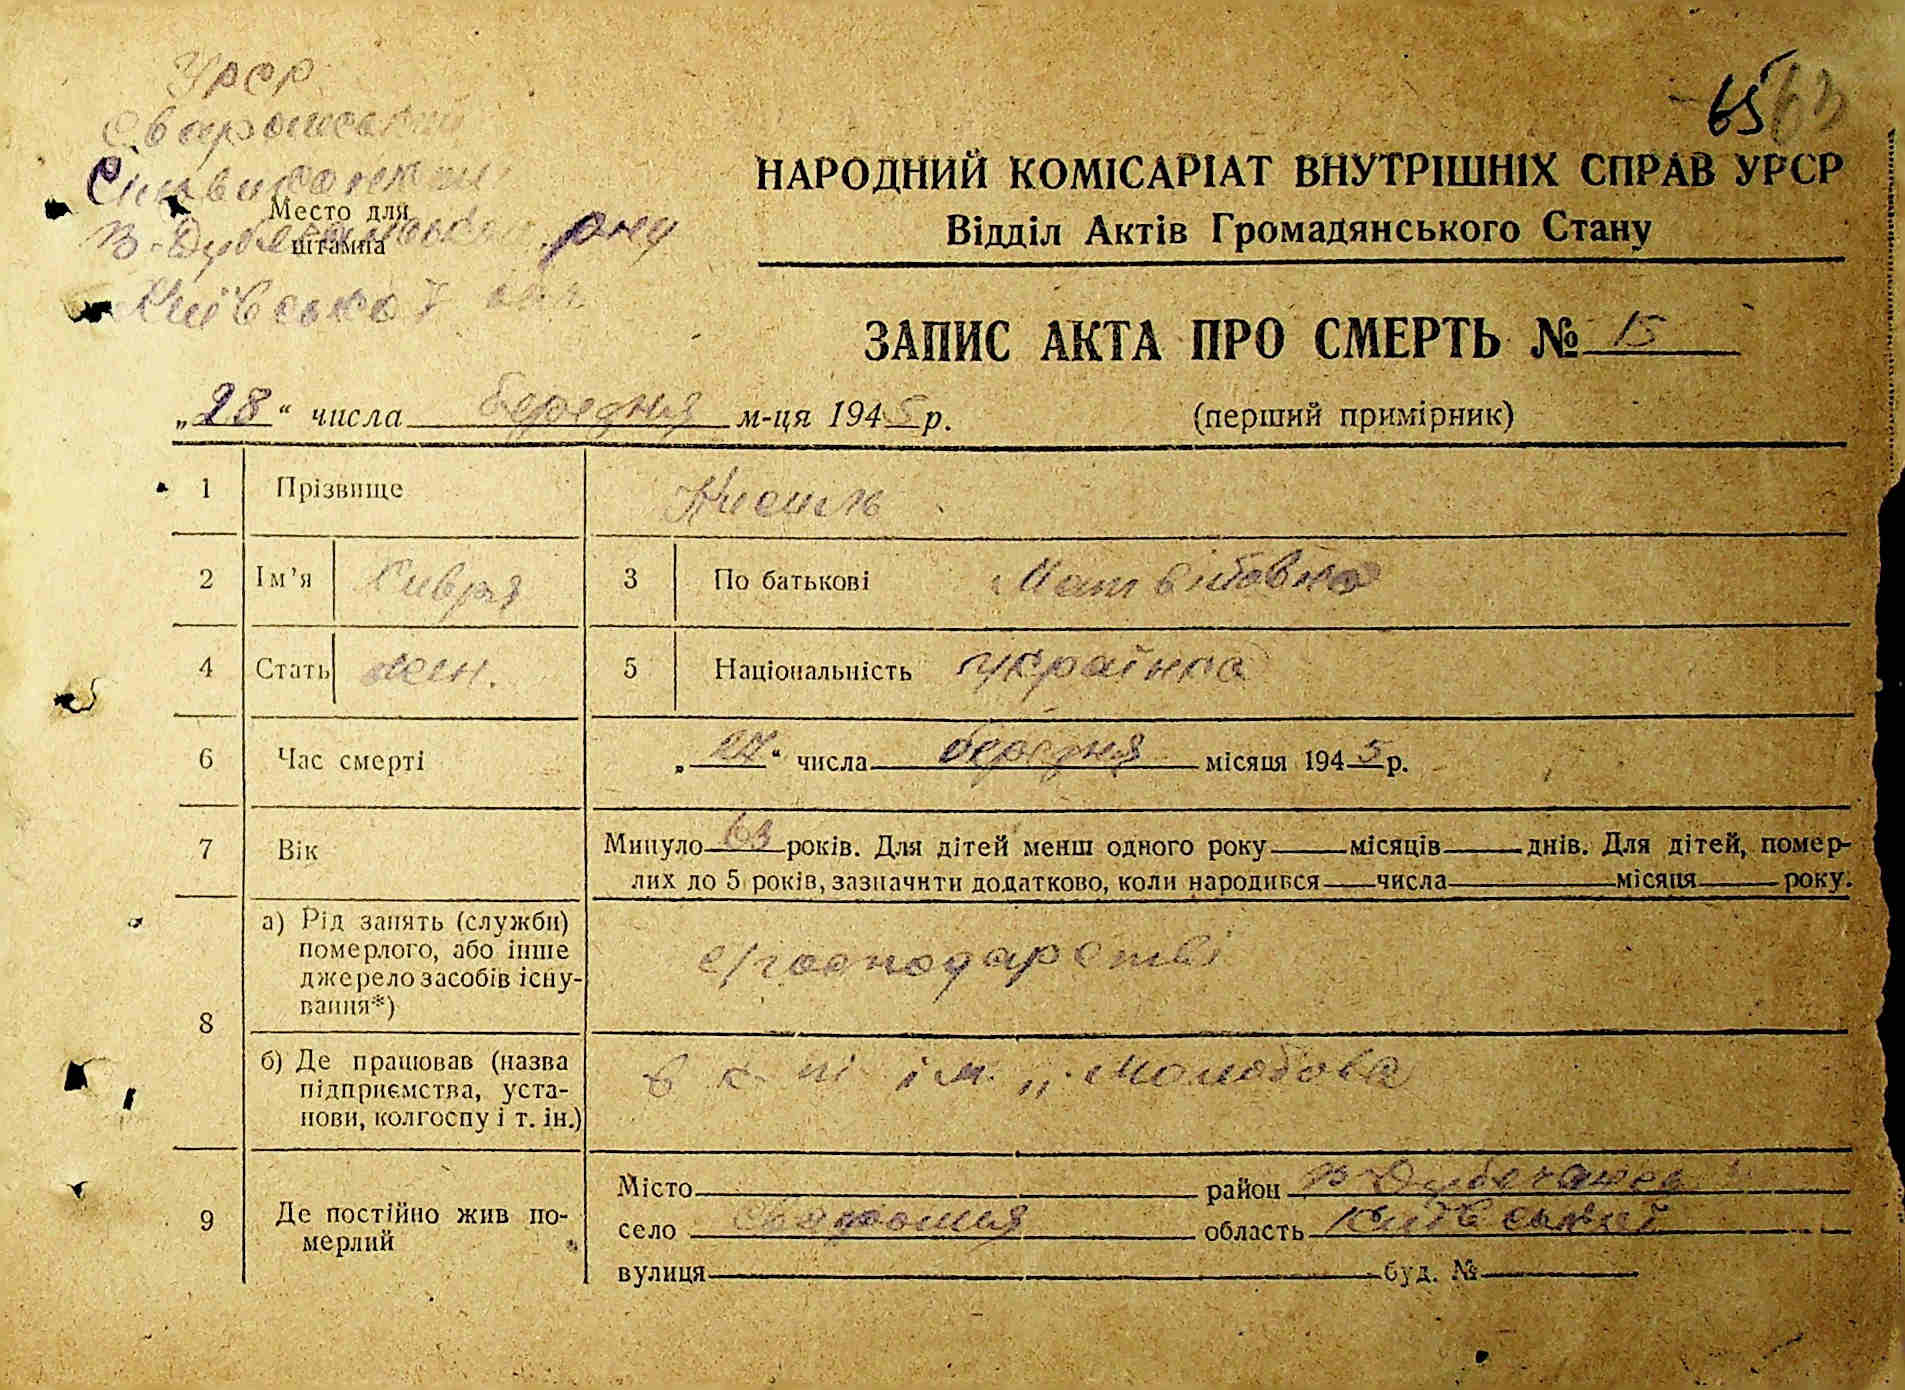 УРСР
Сваромський
Сільвиконком
Место для
штампа
В-Дубечанського р-ну
Київської обл
65
63
НАРОДНИЙ КОМІСАРІАТ ВНУТРІШНІХ СПРАВ УРСР
Відділ Актів Громадянського Стану
ЗАПИС АКТА ПРО СМЕРТЬ № 15
„28“ числа березня м-ця 1945 р.
(перший примірник)
1 Прізвище Кисіль
2 Ім’я Хивря 3 По батькові Матвійовна
4 Стать жен. 5 Національність українка
6 Час смерті „27“ числа березня місяця 1945 р.
7 Вік Минуло 63 років. Для дітей менш одного року місяців днів. Для дітей, помер-
лих до 5 років, зазначити додатково, коли народився числа місяця року.
8 а) Рід занять (служби)
померлого, або інше
джерело засобів існу-
вання*)
с/господарстві
б) Де працював (назва
підприємства, уста-
нови, колгоспу і т. ін.)
в к-пі ім. „Молотова
9 Де постійно жив по-
мерлий
Місто район В Дубечанск
село Сваромія область Київський
вулиця буд. №